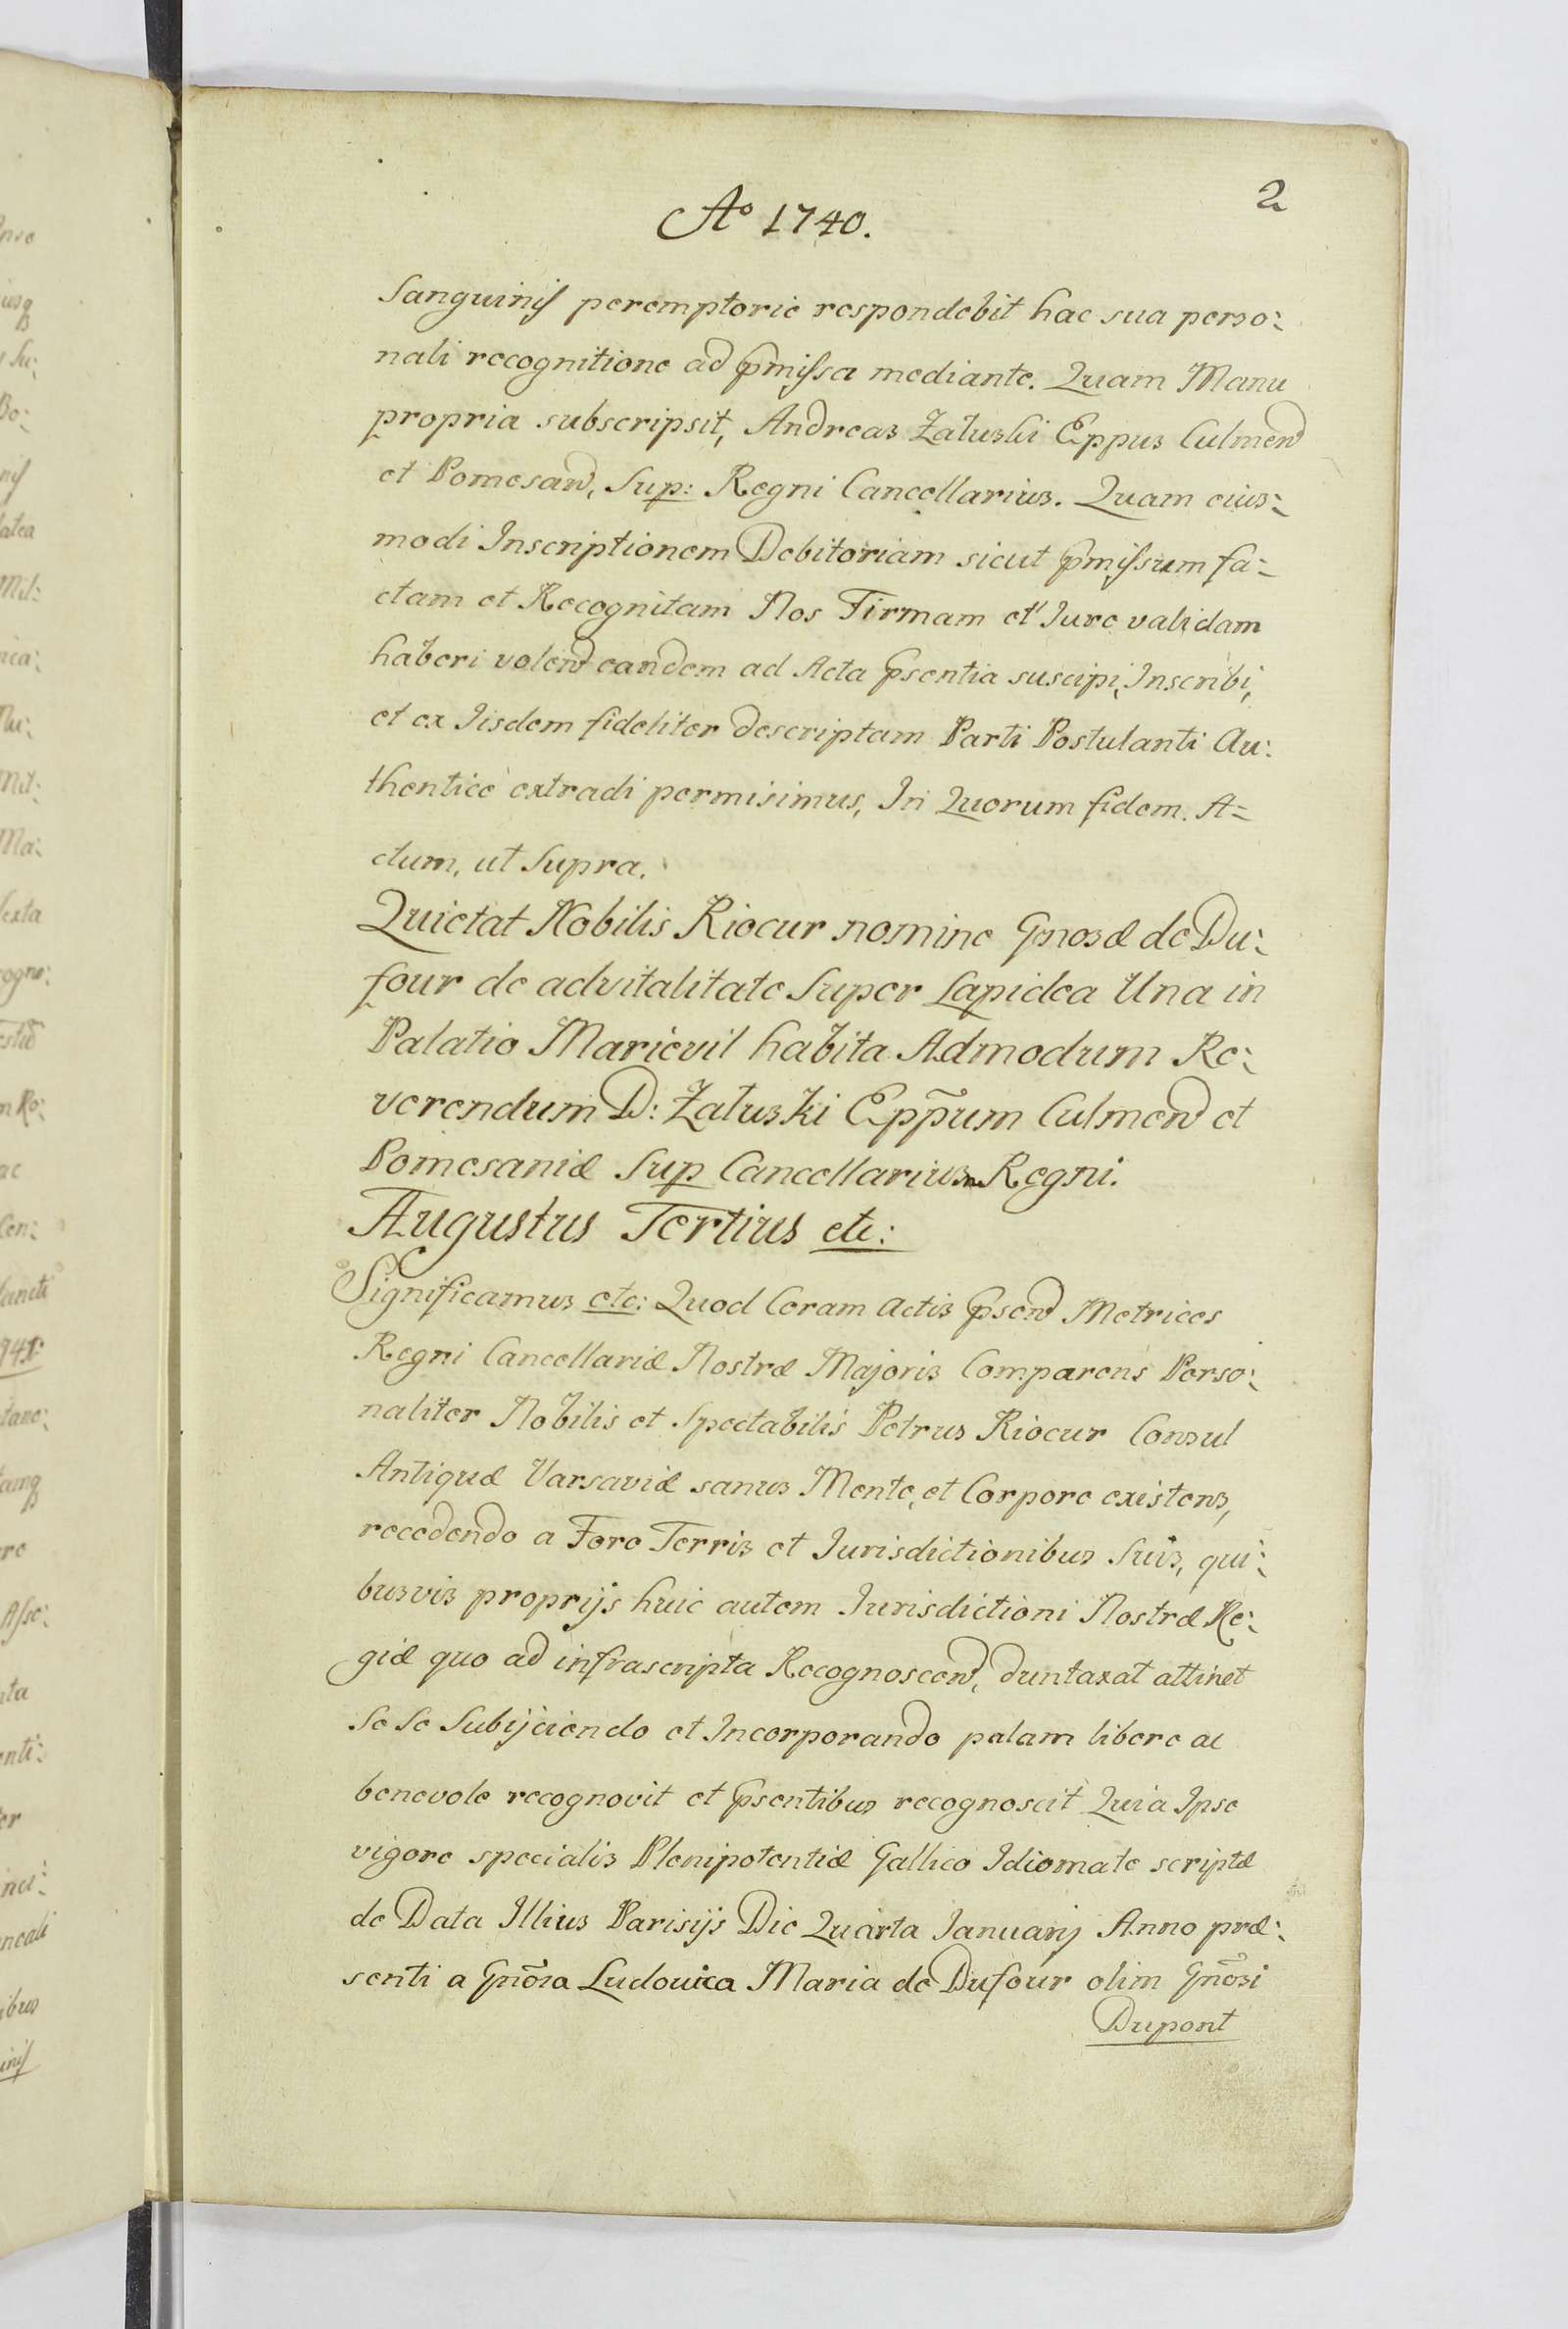 2
Aº 1740.
Sanguinis peremptorie respondebit hac sua perso:
nali recognitione ad pmissa mediante. Quam Manu
propria subscripsit, Andreas Załuski Eppus Culmen
et Pomesan, Sup: Regni Cancellarius. Quam eius:
modi Inscriptionem Debitoriam sicut pmissum fa:
ctam et Recognitam Nos Firmam et Jure validam
haberi volen eandem ad Acta psentia suscipi, Inscribi,
et ex Iisdem fideliter descriptam Parti Postulanti Au:
thenticè extradi permisimus, In Quorum fidem. A:
ctum, ut Supra.
Quietat Nobilis Riocur nomine Gnosæ de Du:
four de advitalitate Super Lapidea Una in
Palatio Marievil habita Admodum Re:
verendum D: Załuski Epp̃um Culmen et
Pomesaniæ Sup Cancellarium Regni.
Augustus Tertius etc:
Significamus etc: Quod Coram Actis psen Metrices
Regni Cancellariæ Nostræ Majoris Comparens Perso:
naliter Nobilis et Spectabilis Petrus Riocur Consul
Antiquæ Varsaviæ sanus Mente, et Corpore existens,
recedendo a Foro Terris et Jurisdictionibus Suis, qui:
busvis proprijs huic autem Jurisdictioni Nostræ Re:
giæ quo ad infrascripta Recognoscen, duntaxat attinet
Se Se Subijciendo et Incorporando palam libere ac
benevole recognovit et psentibus recognoscit Quia Ipse
vigore specialis Plenipotentiæ Gallico Idiomate scriptæ
de Data Illius Parisijs Die Quarta Januarij Anno præ:
senti a Gñosa Ludovica Maria de Dufour olim Gñosi
Dupont